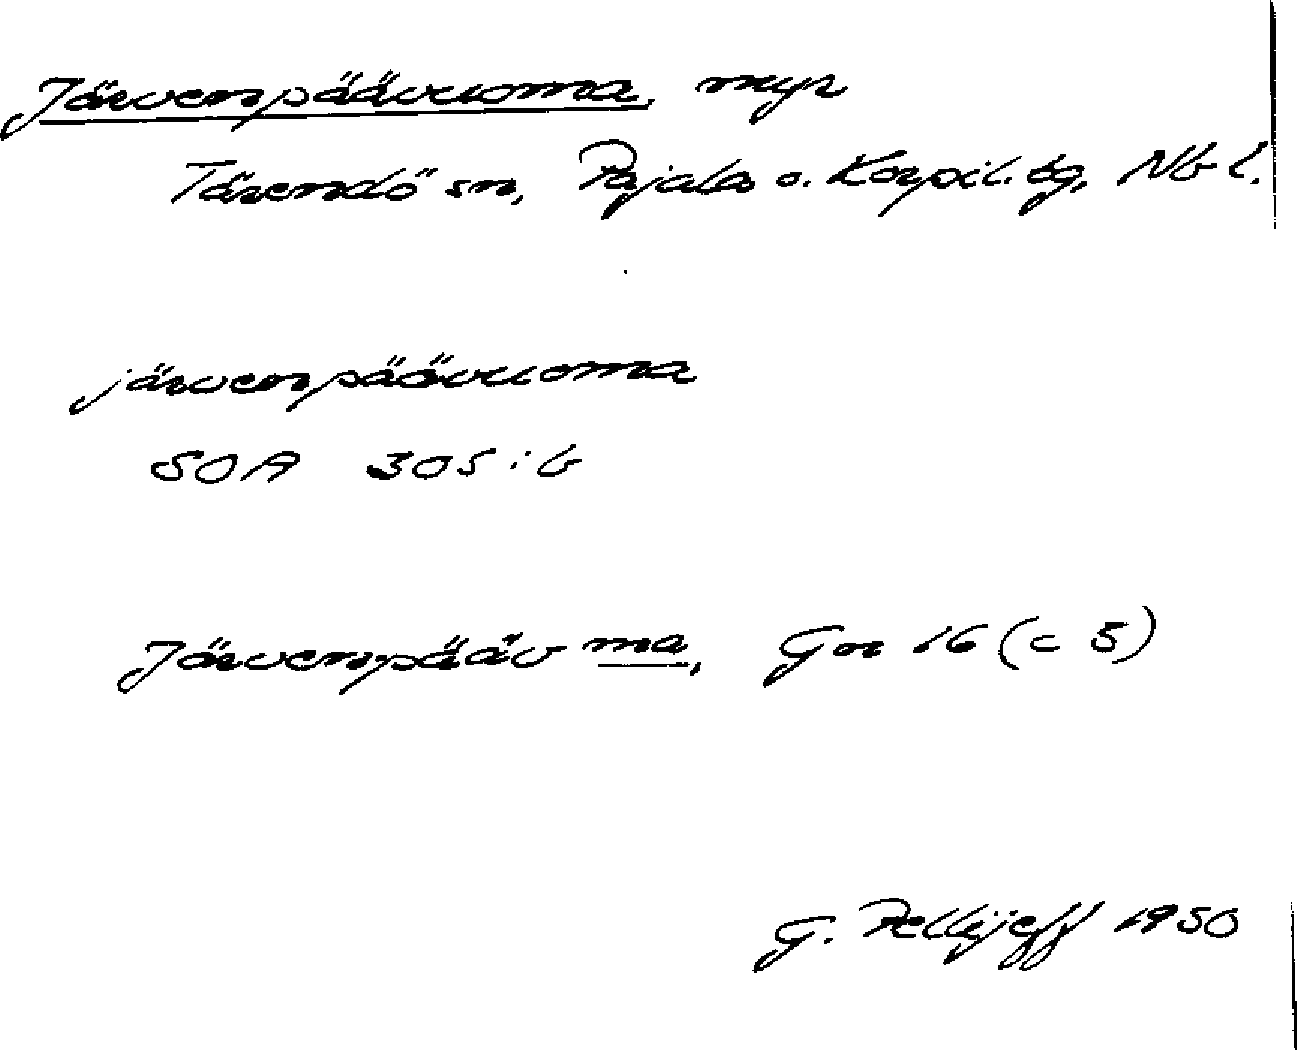 Järvenpäävuoma, myr
Tärendö sn, Pajala o. Korpil. tg, Nb l.
järvenpäävuoma
SOA 305:b
Järvenpääv ma, Gn 16 (c 5)
G. Pellijeff 1950